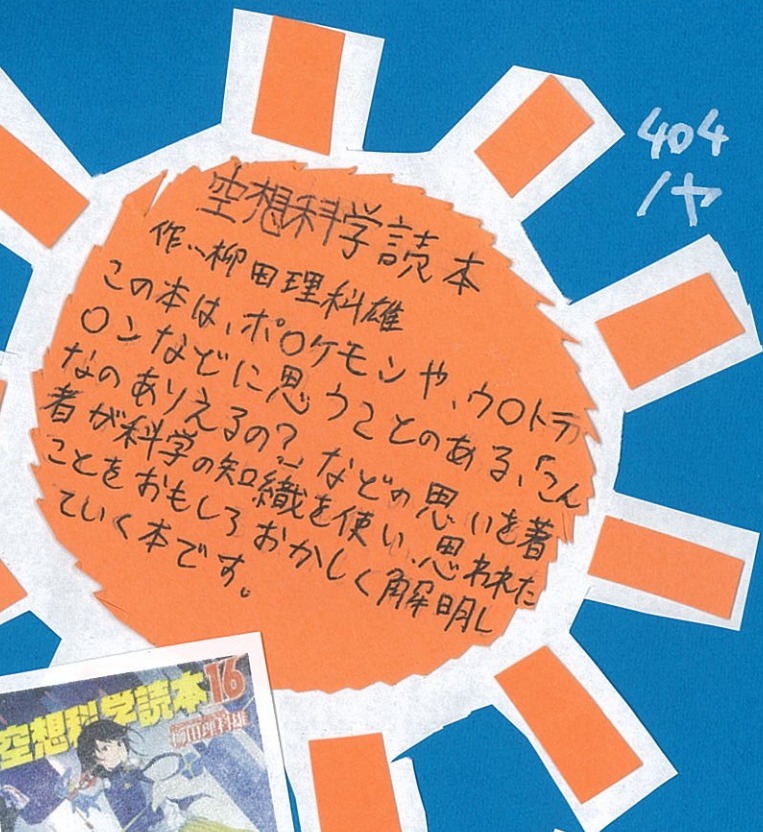 空想科学読本
作…柳田理科雄
この本は、ポ〇ケモンや、ウ〇トラ
〇ンなどに思うことのある、「こん
なのありえるの?」などの思いを著
者が科学の知識を使い、思われた
ことをおもしろおかしく解明し
ていく本です。
404
/ヤ
空想科学読本16
柳田理科雄